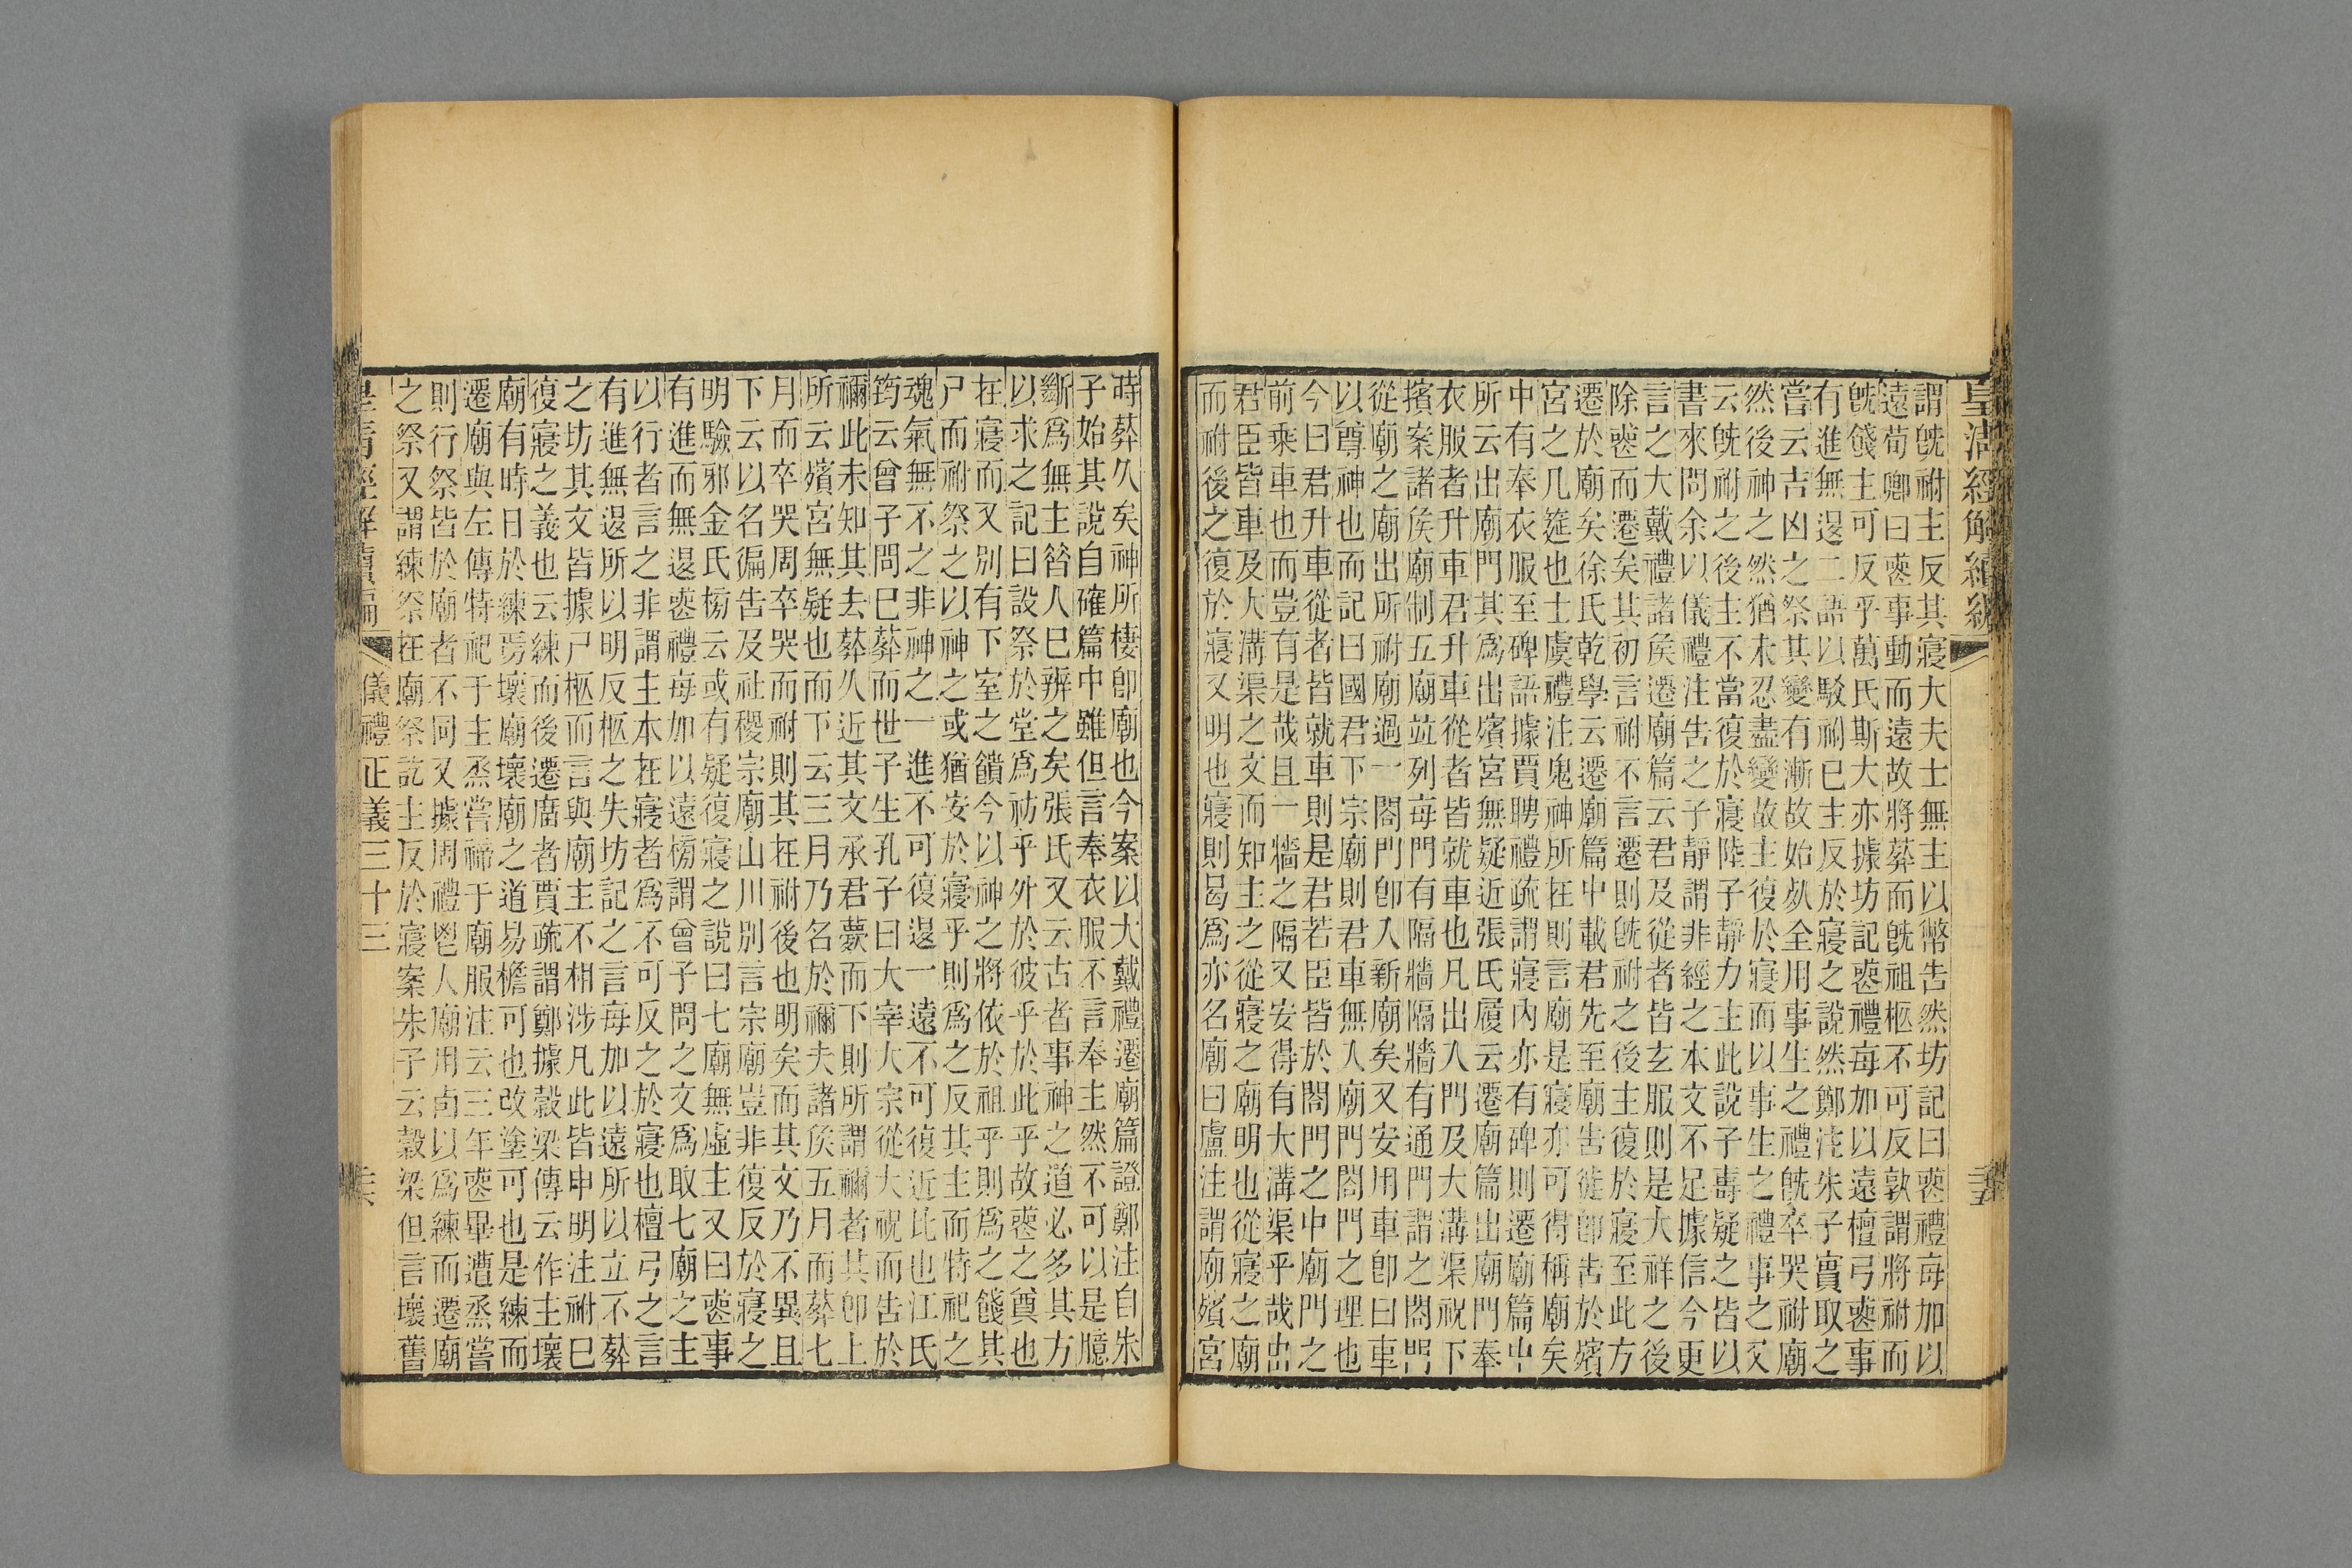 皇清經解續編
謂既祔主反其寢大夫士無主以幣告然坊記曰喪禮每加以
遠荀卿曰喪事動而遠故將葬而既祖柩不可反敦謂將祔而
既餞主可反乎萬氏斯大亦據坊記喪禮每加以遠檀弓喪事
有進無退二語以駁祔已主反於寢之說然鄭注朱子實取之
嘗云吉凶之祭其變有漸故始死全用事生之禮既卒哭祔廟
然後神之然猶未忍盡變故主復於寢而以事生之禮事之又
云既祔之後主不當復於寢陸子靜力主此說子壽疑之皆以
書來問余以儀禮注告之子靜謂非經之本文不足據信今更
言之大戴禮諸矦遷廟篇云君及從者皆玄服則是大祥之後
除喪而遷矣其初言祔不言遷則既祔之後主復於寢至此方
遷於廟矣徐氏乾學云遷廟篇中載君先至廟告徙即告於殯
宮之几筵也士虞禮注鬼神所在則言廟是寢亦可得稱廟矣
中有奉衣服至碑語據賈聘禮疏謂寢內亦有碑則遷廟篇中
所云出廟門其爲出殯宮無疑近張氏履云遷廟篇出廟門奉
衣服者升車君升車從者皆就車也凡出入門及大溝渠祝下
擯案諸矦廟制五廟竝列每門有隔牆隔牆有通門謂之閤門
從廟之廟出所祔廟過一閤門即入新廟矣又安用車即曰車
以尊神也而記曰國君下宗廟則君車無入廟門閤門之理也
今曰君升車從者皆就車則是君若臣皆於閤門之中廟門之
前乘車也而豈有是哉且一牆之隔又安得有大溝渠乎哉出
君臣皆車及大溝渠之文而知主之從寢之廟明也從寢之廟
而祔後之復於寢又明也寢則曷爲亦名廟曰盧注謂廟殯宮
時葬久矣神所棲即廟也今案以大戴禮遷廟篇證鄭注自朱
子始其說自確篇中雖但言奉衣服不言奉主然不可以是臆
斷爲無主咎人已辨之矣張氏又云古者事神之道必多其方
以求之記曰設祭於堂爲祊乎外於彼乎於此乎故喪之奠也
在寢而又別有下室之饋今以神之將依於祖乎則爲之餞其
尸而祔祭之以神之或猶安於寢乎則爲之反其主而特祀之
魂氣無不之非神之一進不可復退一遠不可復近比也江氏
筠云曾子問已葬而世子生孔子曰大宰大宗從大祝而告於
禰此未知其去葬久近其文承君薨而下則所謂禰者其即上
所云殯宮無疑也而下云三月乃名於禰夫諸矦五月而葬七
月而卒哭周卒哭而祔則其在祔後也明矣而其文乃不異且
下云以名徧告及社稷宗廟山川別言宗廟豈非復反於寢之
明驗邪金氏榜云或有疑復寢之說曰七廟無虛主又曰喪事
有進而無退喪禮每加以遠榜謂曾子問之文爲取七廟之主
以行者言之非謂主本在寢者爲不可反之於寢也檀弓之言
有進無退所以明反柩之失坊記之言每加以遠所以立不葬
之坊其文皆據尸柩而言與廟主不相涉凡此皆申明注祔已
復寢之義也云練而後遷廟者賈疏謂鄭據穀梁傳云作主壞
廟有時日於練焉壞廟壞廟之道易檐可也改塗可也是練而
遷廟與左傳特祀于主烝嘗禘于廟服注云三年喪畢遭烝嘗
則行祭皆於廟者不同又據周禮鬯人廟用卣以爲練而遷廟
之祭又謂練祭在廟祭訖主反於寢案朱子云穀梁但言壞舊
皇清經解續編
儀禮正義三十三